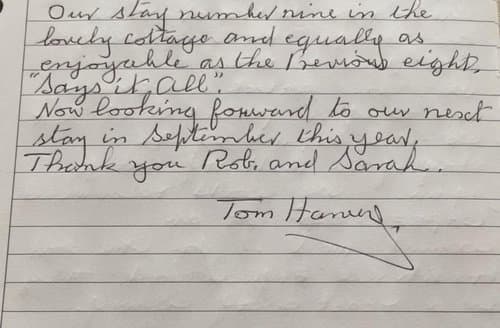 Our stay number nine in the
lovely cottage and equally as
enjoyable as the Previous eight,
"Says it All".
Now looking forward to our next
stay in September this year.
Thank you Rob. and Sarah.
Tom